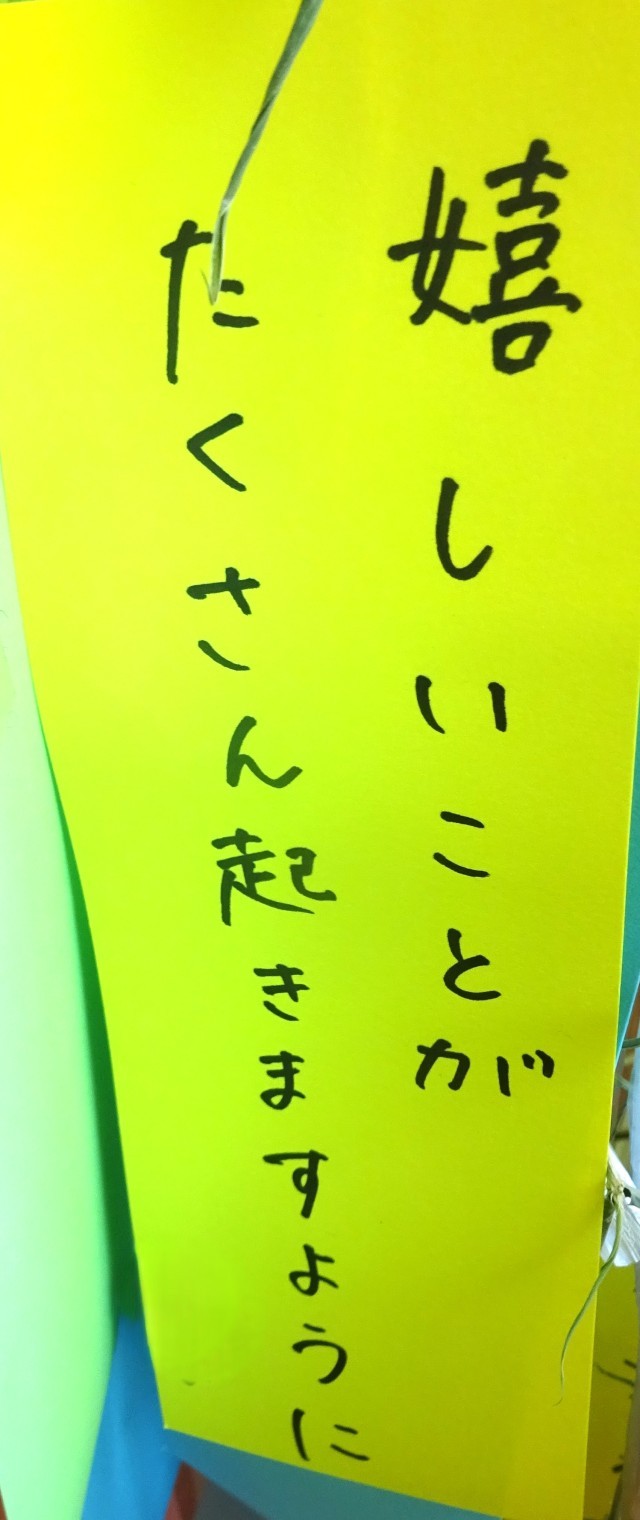 嬉しいことが
たくさん起きますように